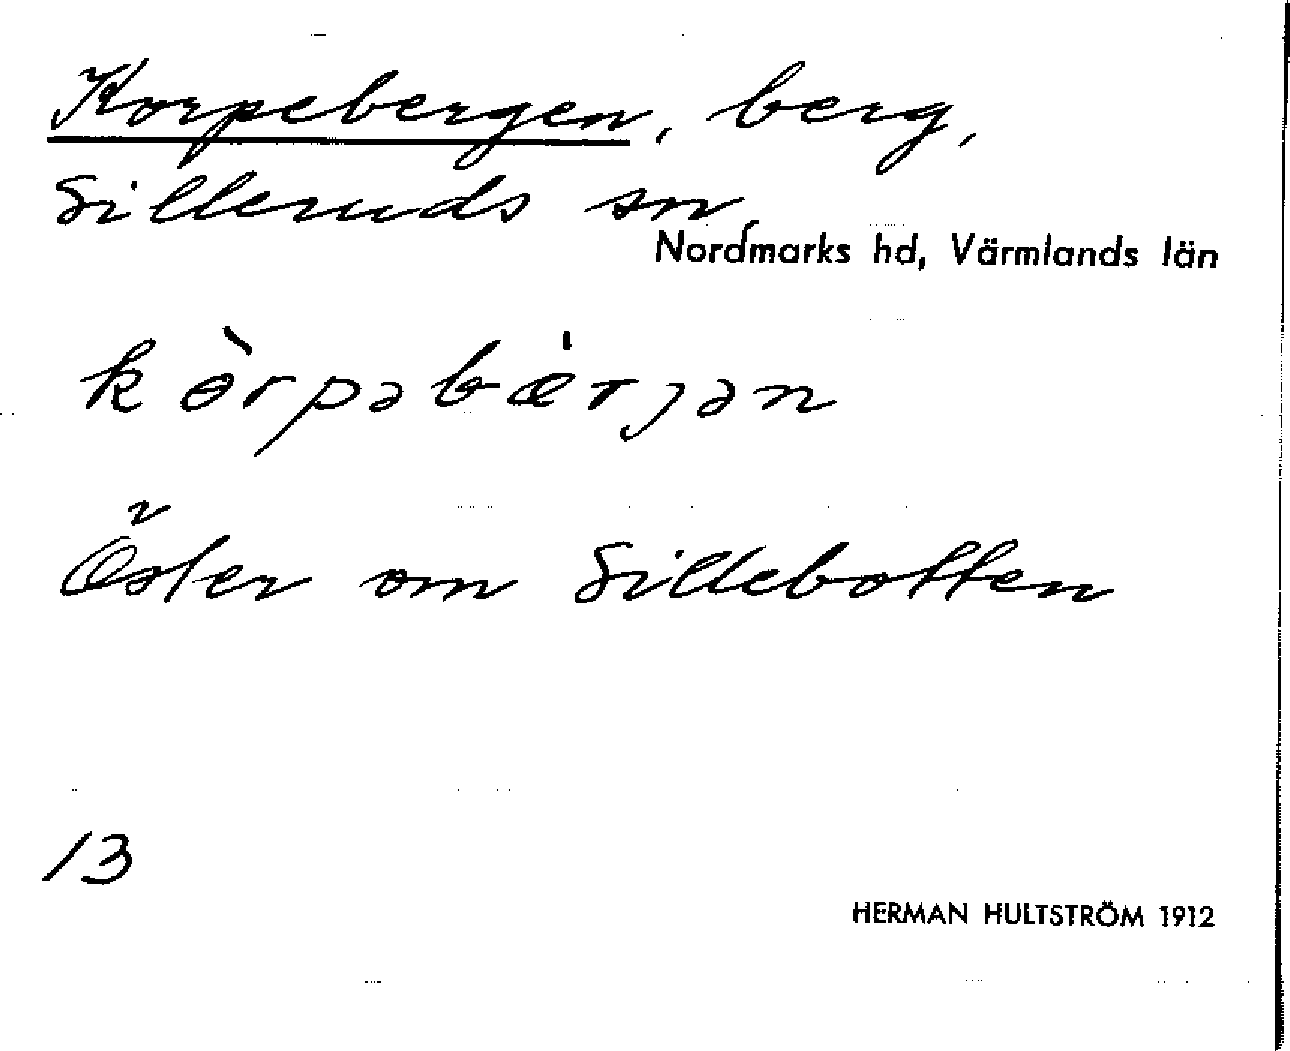 Korpebergen, berg,
Silleruds sn
Nordmarks hd, Värmlands län
kɵ̀rpəbæ̀rjən
Öster om Sillebotten
13
HERMAN HULTSTRÖM 1912